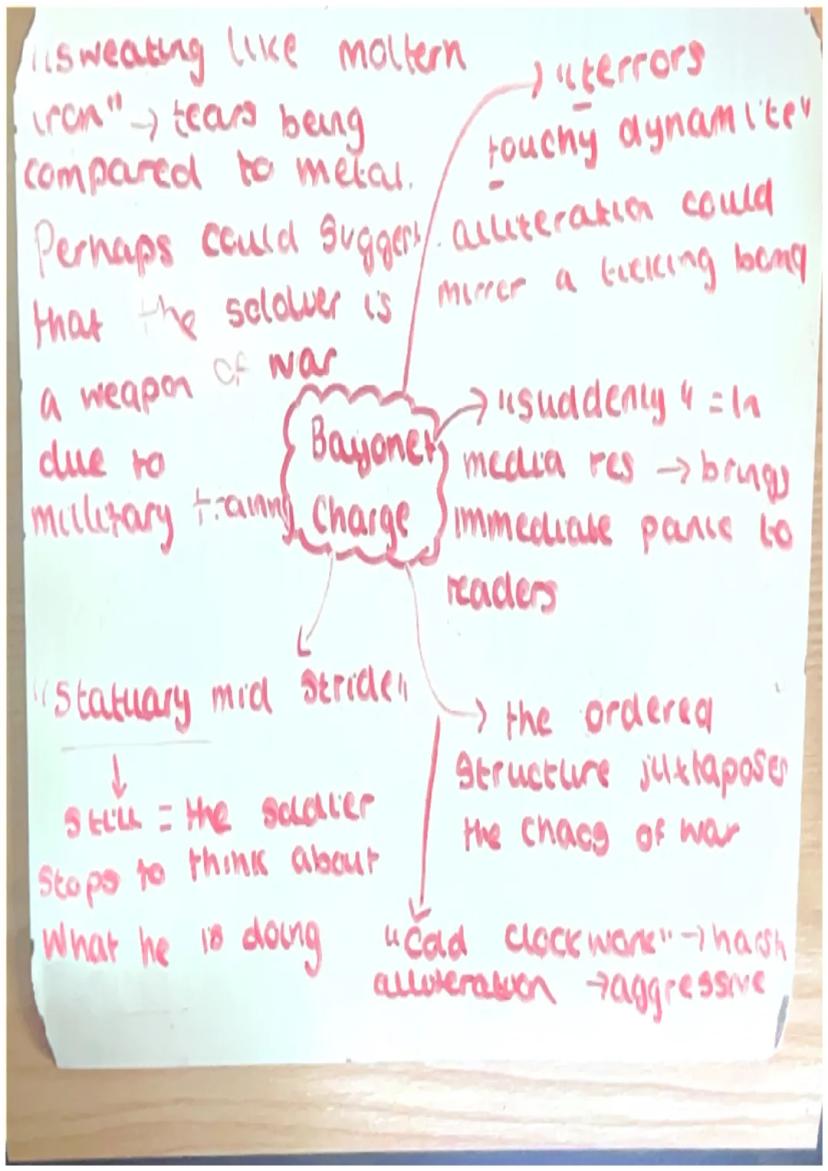 "sweating like moltern
iron" → tears being
compared to metal.
Perhaps could suggest
that the soldier is
a weapon of war
due to
millitary training
→ "terrors
touchy dynamite"
alliteration could
mirror a ticking bomb
Bayonet
Charge
→ "suddenly" = In
media res → brings
immediate panic to
readers
"Statuary mid stride"
↓
still = the soldier
stops to think about
what he is doing
→ the ordered
structure juxtaposes
the chaos of war
"Cold clockwork" → harsh
alliteration → aggressive